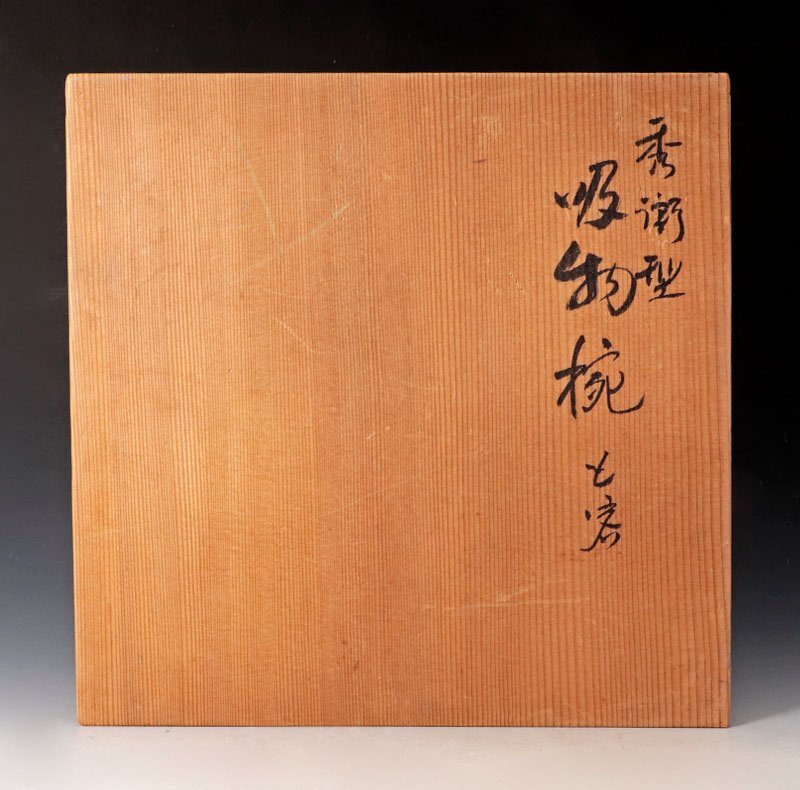 秀衡型
吸物椀 七客